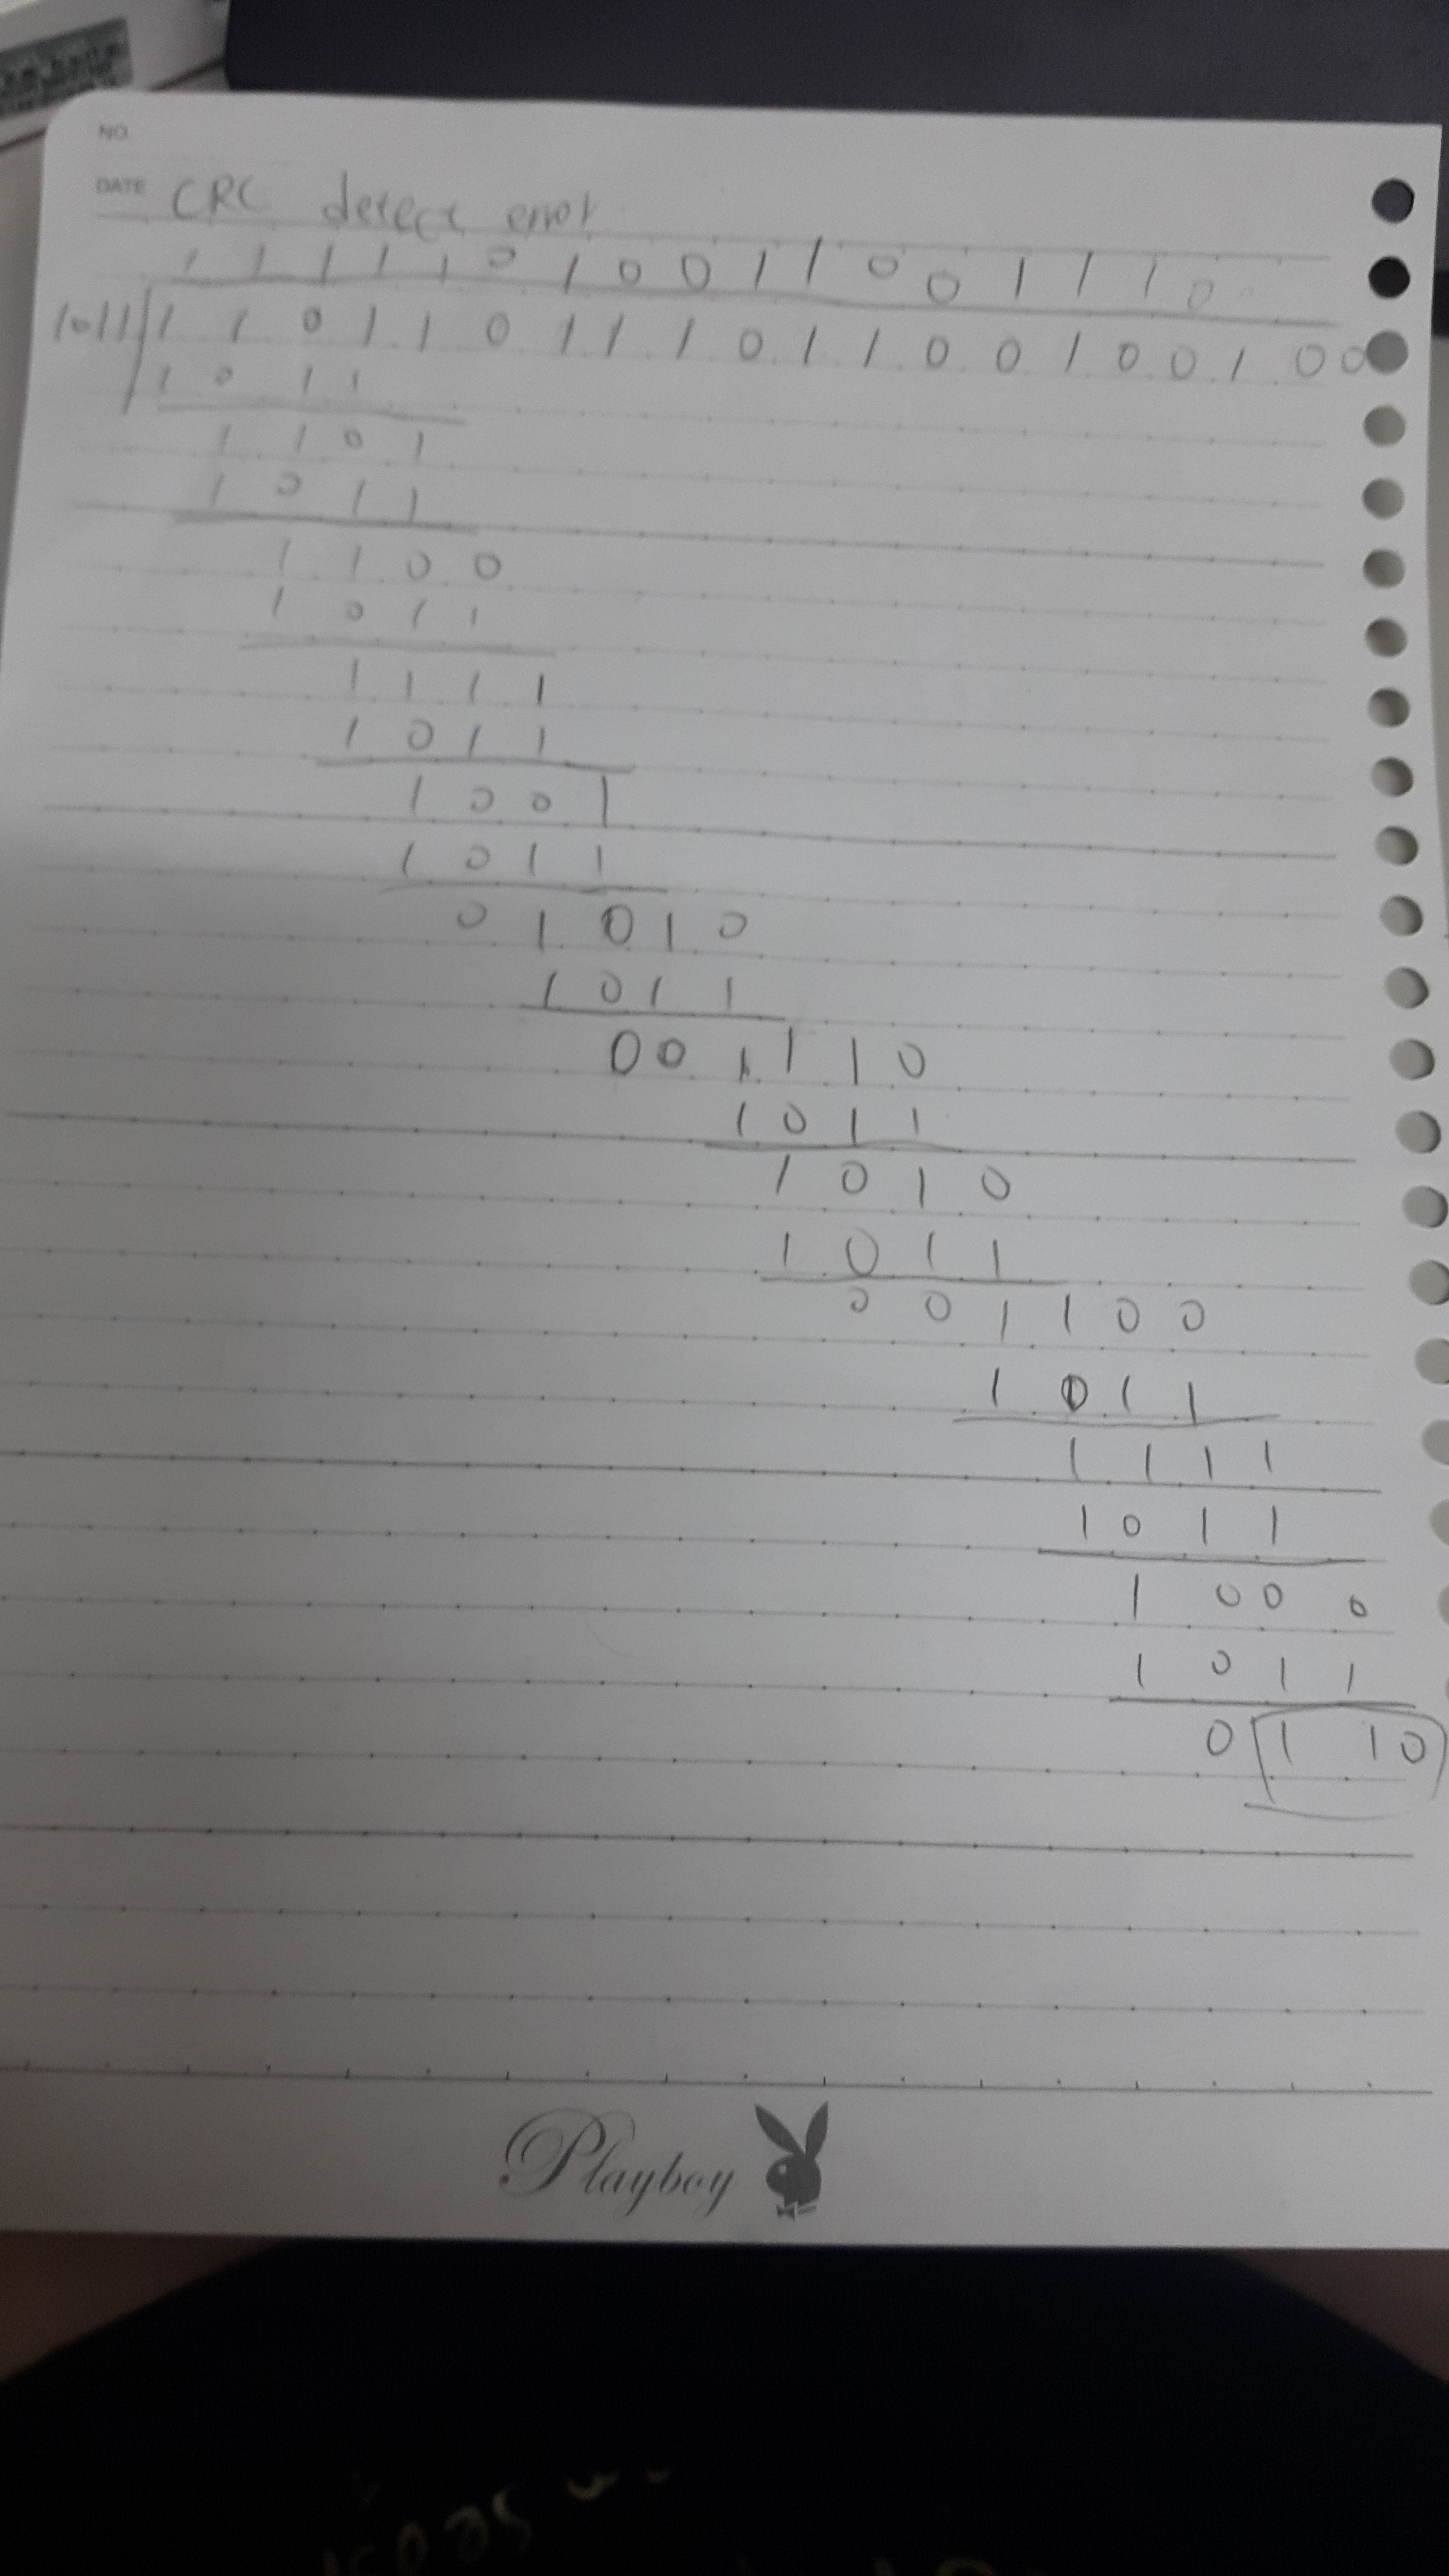 NO.
DATE CRC detect error
1 1 1 1 1 0 1 0 0 1 1 0 0 1 1 1 0
1011 1 1 0 1 1 0 1 1 1 0 1 1 0 0 1 0 0 1 0 0
1 0 1 1
1 1 0 1
1 0 1 1
1 1 0 0
1 0 1 1
1 1 1 1
1 0 1 1
1 0 0 1
1 0 1 1
0 1 0 1 0
1 0 1 1
0 0 1 1 1 0
1 0 1 1
1 0 1 0
1 0 1 1
0 0 1 1 0 0
1 0 1 1
1 1 1 1
1 0 1 1
1 0 0 0
1 0 1 1
0 1 1 0
Playboy